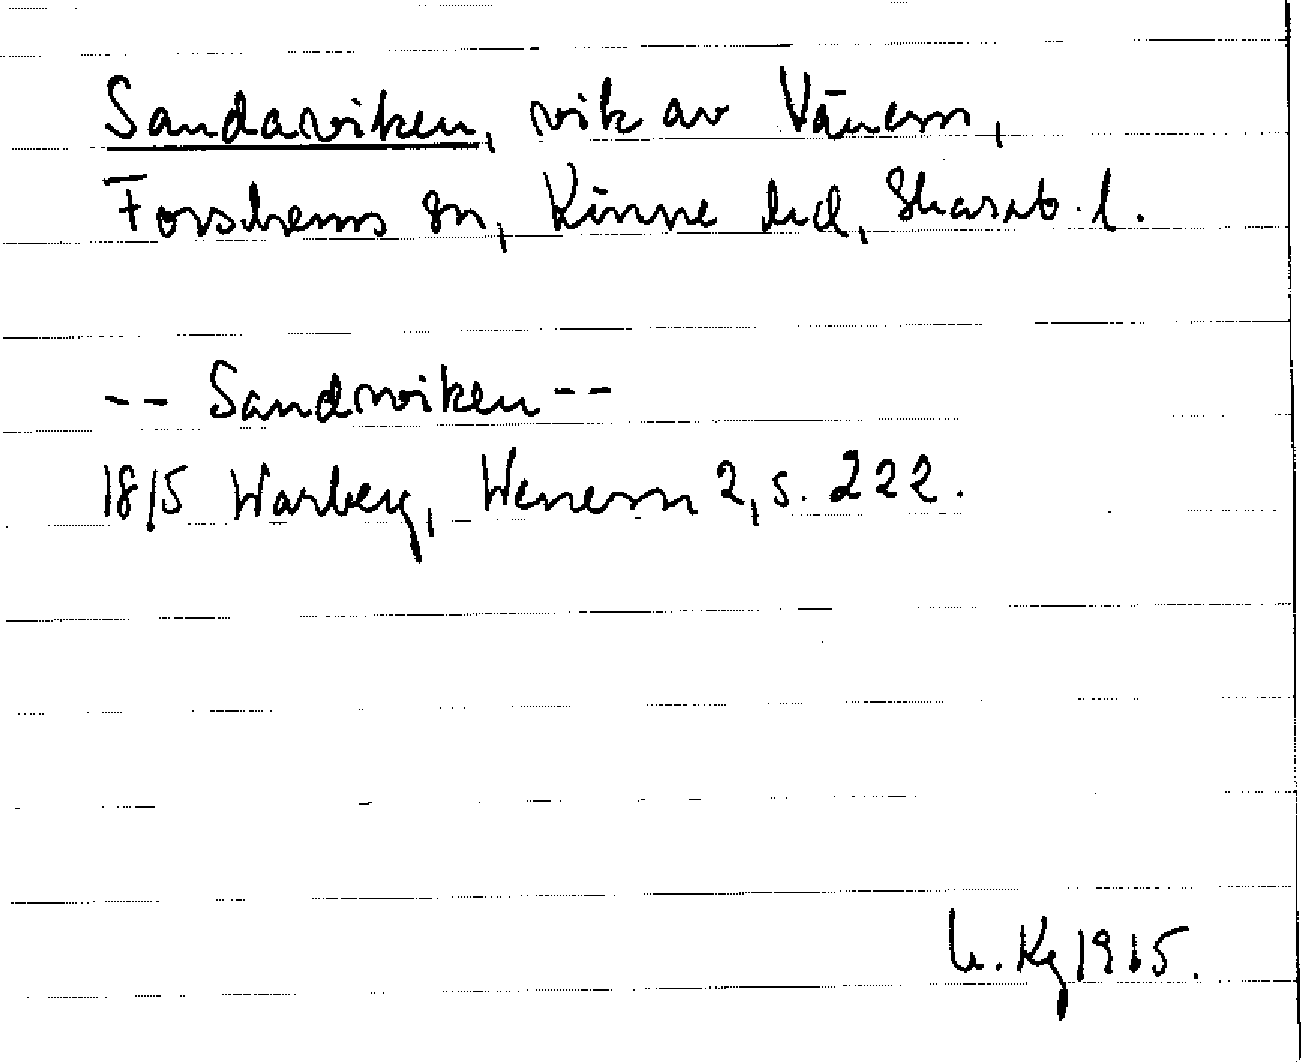 Sandaviken, vik av Vänern,
Forshems sn, Kinne hd, Skarab. l.
-- Sandviken --
1815 Warberg, Wenern 2, s. 222.
Kg 1915.